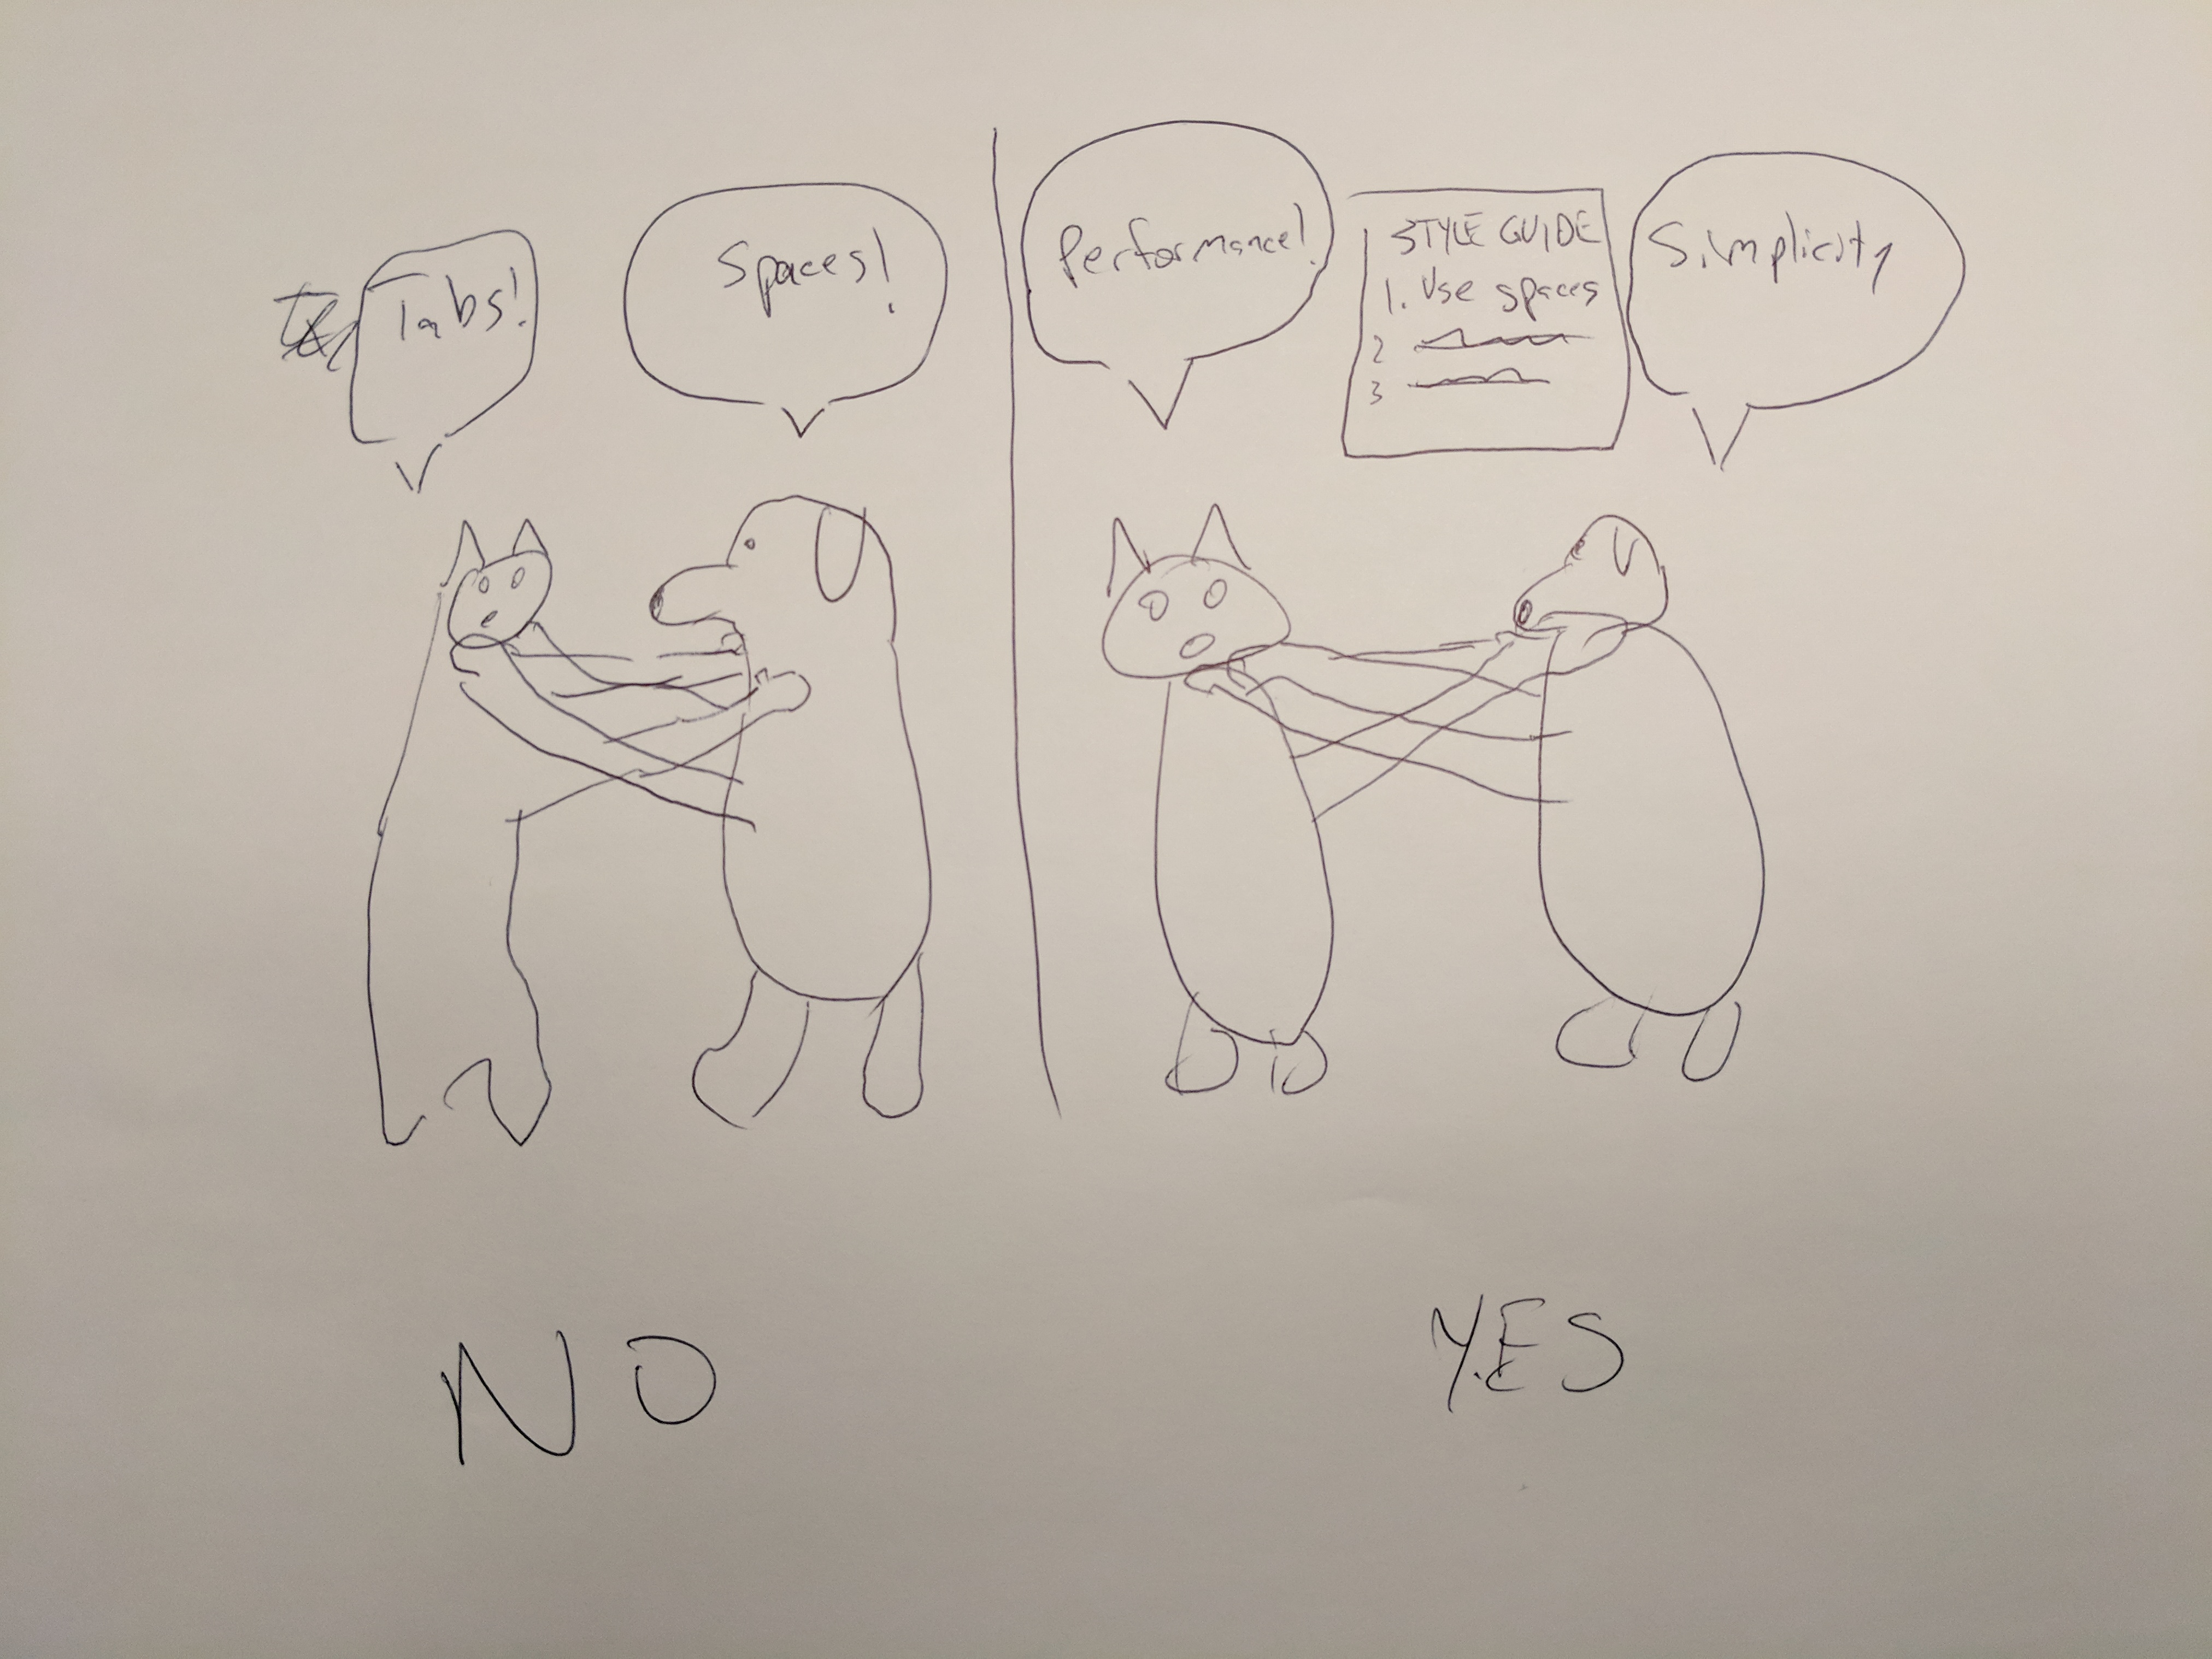 Tabs!
Spaces!
Performance!
STYLE GUIDE
1. Use spaces
2
3
Simplicity
NO
YES